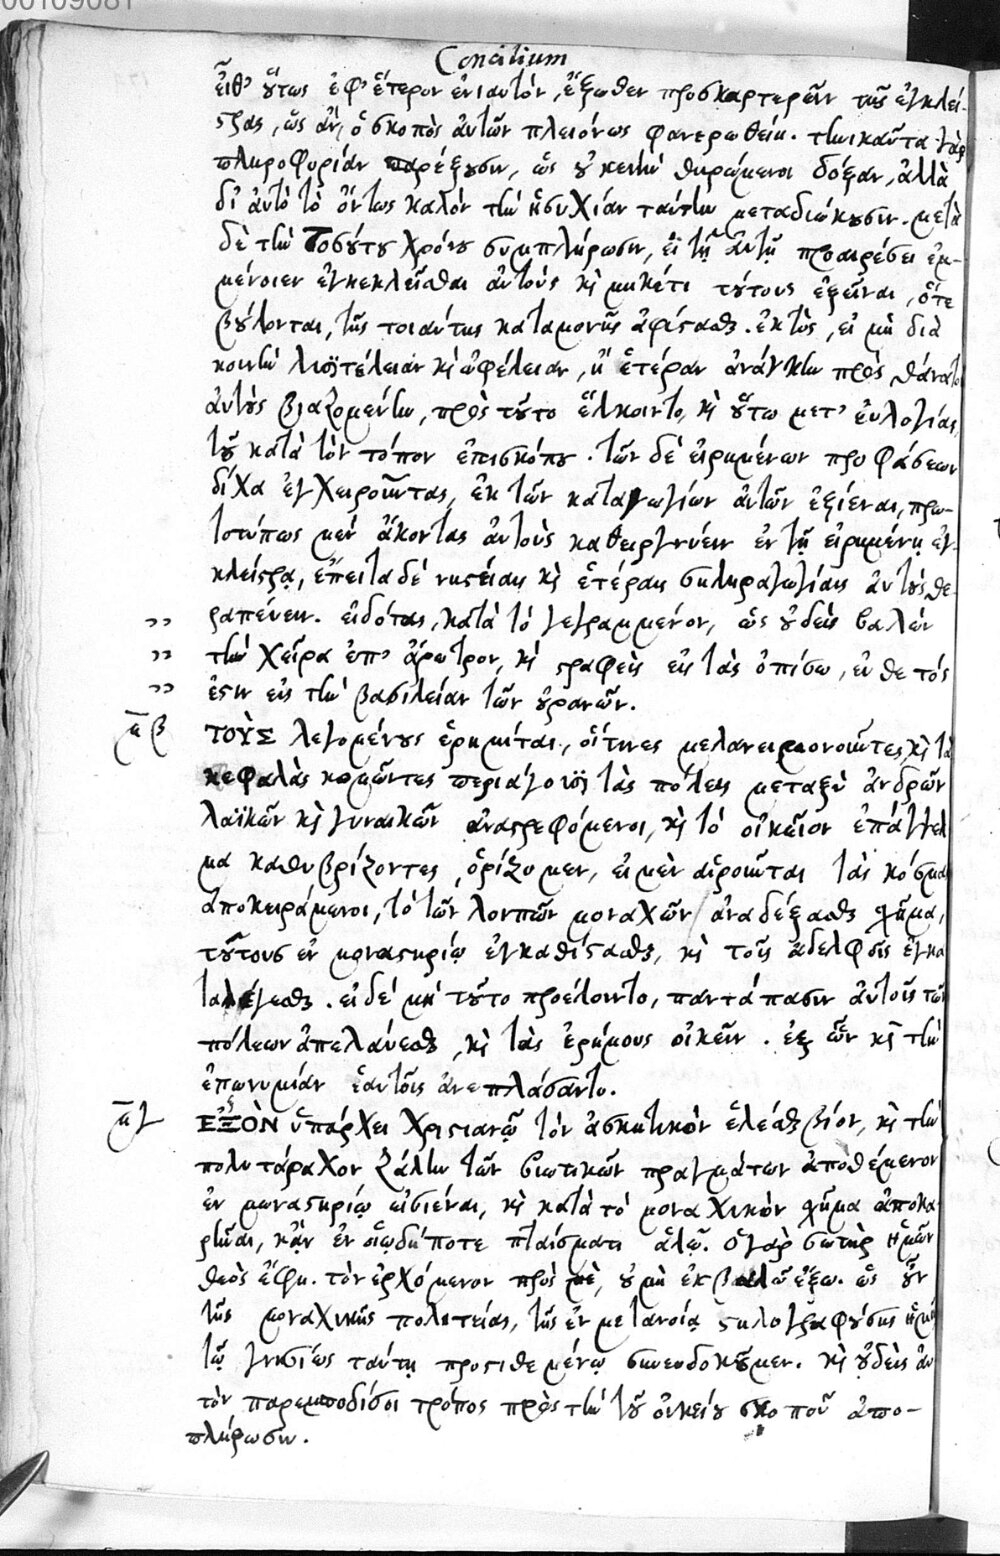 00109081
Concilium
εἶθ' οὕτως ἐφ' ἕτερον ἐνιαυτόν, ἔξωθεν προσκαρτερεῖν τῆς ἐγκλεί-
στρας, ὡς ἂν, ὁ σκοπὸς αὐτῶν πλειόνως φανερωθείη. τηνικαῦτα γὰρ
πληροφορίαν παρέξουσιν, ὡς οὐ κενὴν θηρώμενοι δόξαν, ἀλλὰ
δι' αὐτὸ τὸ ὄντως καλὸν τὴν ἡσυχίαν ταύτην μεταδιώκουσιν. μετὰ
δὲ τὴν τοσούτου χρόνου συμπλήρωσιν, εἰ τῇ αὐτῇ προαιρέσει ἐμ-
μένοιεν ἐγκεκλεῖσθαι αὐτοὺς καὶ μηκέτι τούτους ἐξεῖναι, ὅτε
βούλονται, τῆς τοιαύτης καταμονῆς ἀφίστασθαι. ἐκτὸς, εἰ μὴ διὰ
κοινὴν λυσιτέλειαν καὶ ὠφέλειαν, ἢ ἑτέραν ἀνάγκην πρὸς θάνατον
αὐτοὺς βιαζομένην, πρὸς τοῦτο ἕλκοιντο, καὶ οὕτω μετ' εὐλογίας
τοῦ κατὰ τὸν τόπον ἐπισκόπου. τῶν δὲ εἰρημένων προφάσεων
δίχα ἐγχειροῦντας, ἐκ τῶν καταγωγίων αὐτῶν ἐξιέναι, πρω-
τοτύπως μὲν ἄκοντας αὐτοὺς καθειργνύειν ἐν τῇ εἰρημένῃ ἐγ-
κλείστρᾳ, ἔπειτα δὲ νηστείαις καὶ ἑτέραις σκληραγωγίαις αὐτοὺς θε-
ραπεύειν. εἰδότας, κατὰ τὸ γεγραμμένον, ὡς οὐδεὶς βαλὼν
τὴν χεῖρα ἐπ' ἄροτρον, καὶ στραφεὶς εἰς τὰς ὀπίσω, εὔθετός
ἐστιν εἰς τὴν βασιλείαν τῶν οὐρανῶν.
μβ ΤΟῪΣ λεγομένους ἐρημίτας, οἵτινες μελανειμονοῦντες, καὶ τὰς
κεφαλὰς κομῶντες περιάγουσι τὰς πόλεις μεταξὺ ἀνδρῶν
λαϊκῶν καὶ γυναικῶν ἀναστρεφόμενοι, καὶ τὸ οἰκεῖον ἐπάγγελ
μα καθυβρίζοντες, ὁρίζομεν, εἰ μὲν αἱροῦνται τὰς κόμας
ἀποκειράμενοι, τὸ τῶν λοιπῶν μοναχῶν ἀναδέξασθαι σχῆμα,
τούτους ἐν μοναστηρίῳ ἐγκαθίστασθαι, καὶ τοῖς ἀδελφοῖς ἐγκα
ταλέγεσθαι. εἰ δὲ μὴ τοῦτο προέλοιντο, παντάπασιν αὐτοὺς τῶν
πόλεων ἀπελαύνεσθαι, καὶ τὰς ἐρήμους οἰκεῖν. ἐξ ὧν καὶ τὴν
ἐπωνυμίαν ἑαυτοῖς ἀνεπλάσαντο.
μγ ἘΞῸΝ ὑπάρχει Χριστιανῷ τὸν ἀσκητικὸν ἑλέσθαι βίον, καὶ τὴν
πολυτάραχον ζάλην τῶν βιωτικῶν πραγμάτων ἀποθέμενον
ἐν μοναστηρίῳ εἰσιέναι, καὶ κατὰ τὸ μοναχικὸν σχῆμα ἀποκα
ρῆναι, κἂν ἐν οἱῳδήποτε πταίσματι ἁλῷ. ὁ γὰρ σωτὴρ ἡμῶν
θεὸς ἔφη. τὸν ἐρχόμενον πρός με, οὐ μὴ ἐκβαλῶ ἔξω. ὡς οὖν
τῆς μοναχικῆς πολιτείας, τῆς ἐν μετανοίᾳ στηλογραφούσης ἡμῖν
τῷ γνησίως ταύτῃ προστιθεμένῳ συνευδοκοῦμεν. καὶ οὐδεὶς αὐ
τὸν παρεμποδίσοι τρόπος πρὸς τὴν τοῦ οἰκείου σκοποῦ ἀπο-
πλήρωσιν.